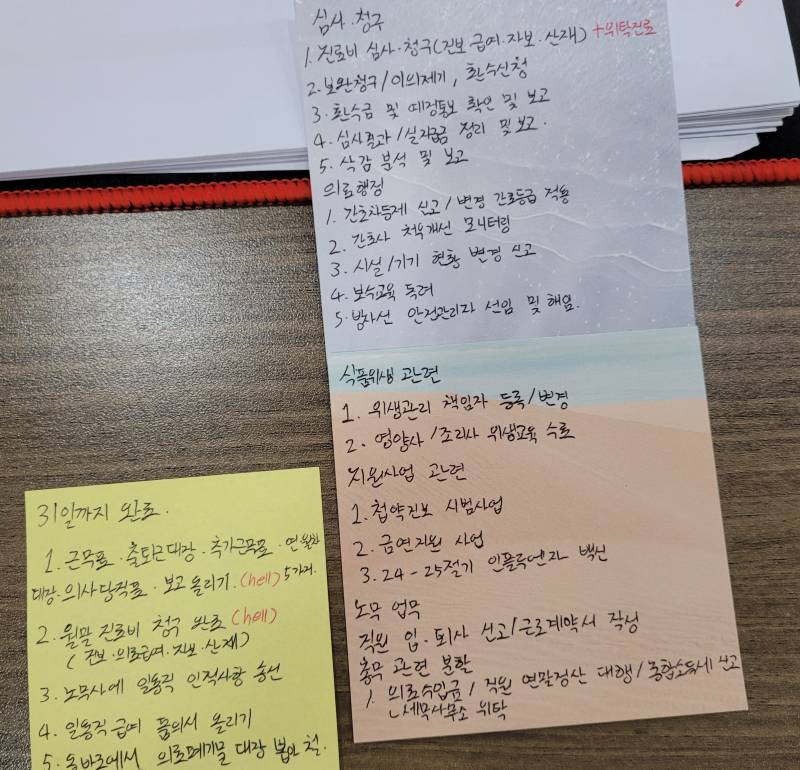 심사·청구
1. 진료비 심사·청구(건보 급여·자보·산재) +위탁진료
2. 보완청구/이의제기, 환수신청
3. 환수금 및 예정통보 확인 및 보고
4. 심사결과/실지급금 정리 및 보고.
5. 삭감 분석 및 보고
의료행정
1. 간호차등제 신고/변경 간호등급 적용
2. 간호사 처우개선 모니터링
3. 시설/기기 현황 변경 신고
4. 보수교육 독려
5. 방사선 안전관리자 선임 및 해임.
식품위생 관련
1. 위생관리 책임자 등록/변경
2. 영양사/조리사 위생교육 수료
지원사업 관련
1. 첩약건보 시범사업
2. 금연지원 사업
3. 24-25절기 인플루엔자 백신
노무 업무
직원 입·퇴사 신고/근로계약서 작성
총무 관련 분할
1. 의료수입금/직원 연말정산 대행/종합소득세 신고
ㄴ세무사무소 위탁
31일까지 완료.
1. 근무표·출퇴근대장·추가근무표·연월차
대장·의사당직표·보고 올리기.(hell) 5가지.
2. 월말 진료비 청구 완료 (hell)
(건보·의료급여·자보·산재)
3. 노무사에 일용직 인적사항 송신
4. 일용직 급여 품의서 올리기
5. 올바로에서 의료폐기물 대장 뽑아 철.